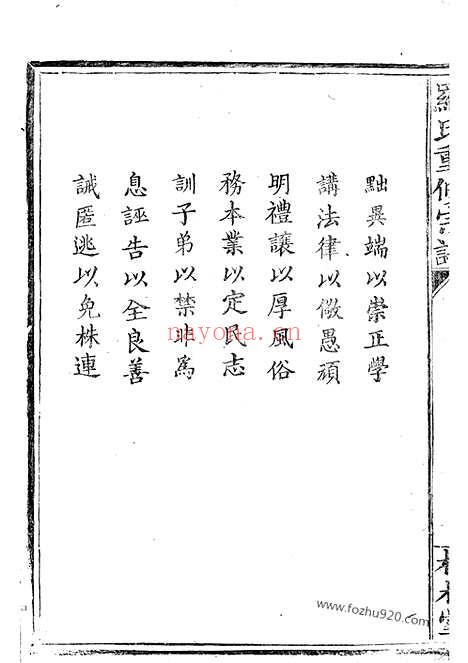 羅氏重修宗譜
黜異端以崇正學
講法律以儆愚頑
明禮讓以厚風俗
務本業以定民志
訓子弟以禁非為
息誣告以全良善
誡匿逃以免株連
nayona.cn
www.fozhu920.com